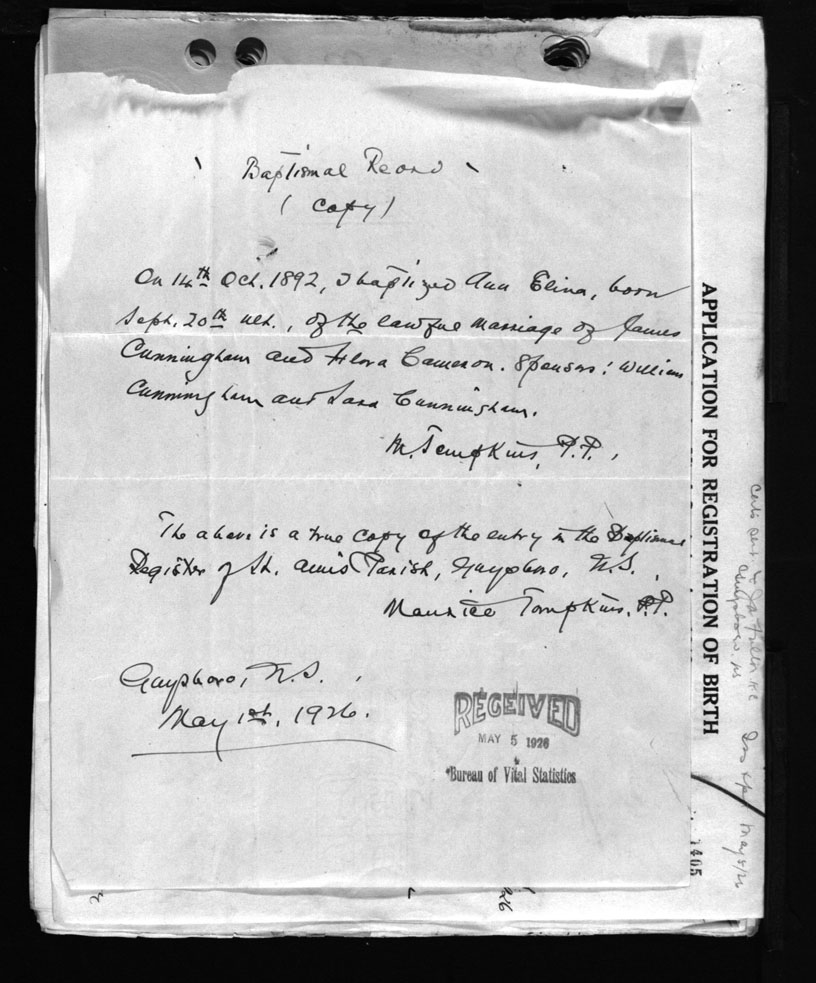 Baptismal Record
(Copy)
On 14th Oct. 1892, I baptized Ann Elina, born
Sept. 20th ult., of the lawful marriage of James
Cunningham and Flora Cameron. Sponsors: William
Cunningham and Cunningham.
M. Tompkins, P.P.,
The above is a true copy of the entry in the Baptismal
Register of St. Ann's Parish, Guysboro, N.S.,
Maurice Tompkins, P.P.
Guysboro, N.S.,
May 1st, 1926.
RECEIVED
MAY 5 1926
Bureau of Vital Statistics
APPLICATION FOR REGISTRATION OF BIRTH
1405
Certi sent to
Guysboro N.S.
May 5/26
26